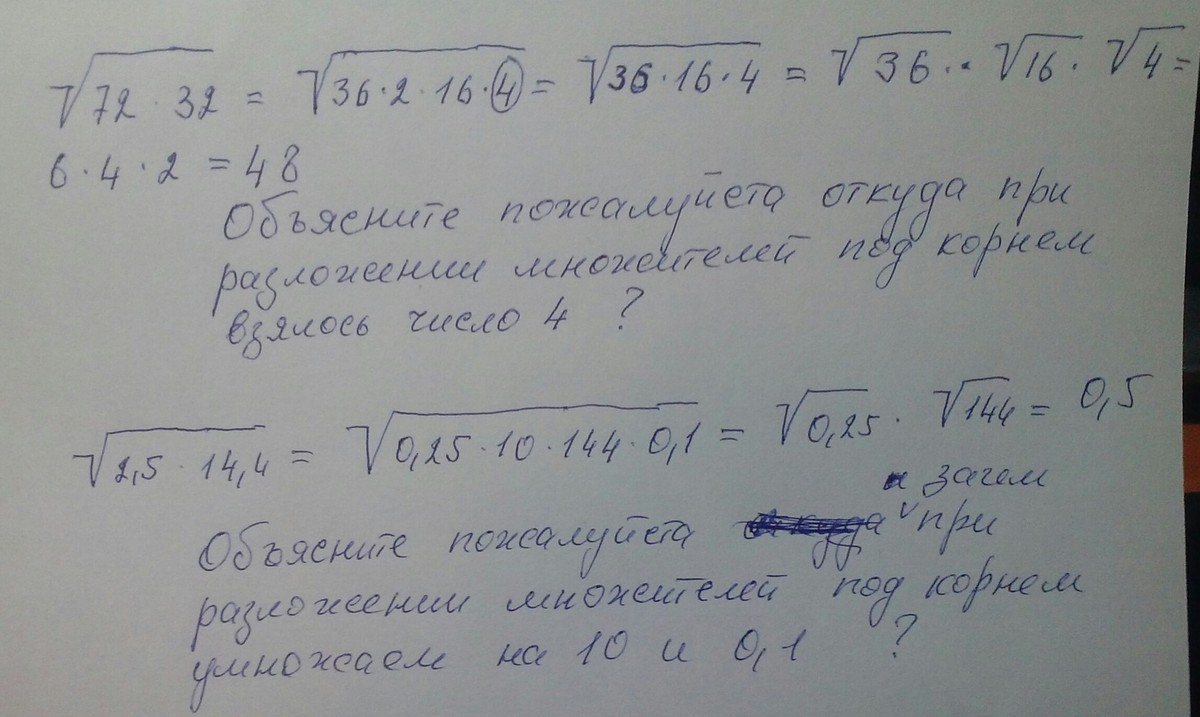 √72 · 32 = √36·2·16·4 = √36·16·4 = √36 · √16 · √4 =
6·4·2 = 48
Объясните пожалуйста откуда при
разложении множителей под корнем
взялось число 4 ?
√2,5 · 14,4 = √0,25·10·144·0,1 = √0,25 · √144 = 0,5
и зачем
Объясните пожалуйста при
разложении множителей под корнем
умножаем на 10 и 0,1 ?